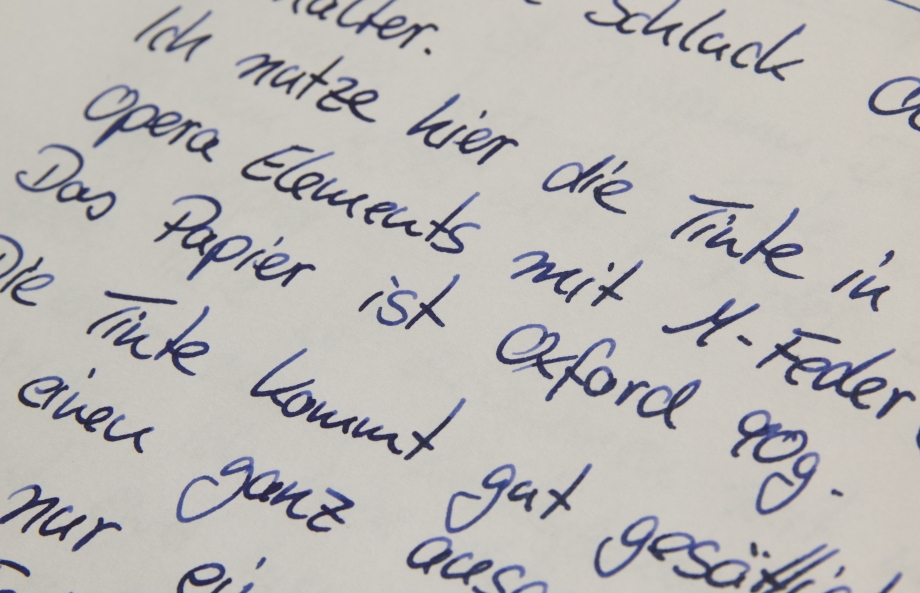 Schluck
Ich nutze hier die Tinte in
Opera Elements mit M-Feder
Das Papier ist Oxford 90g.
Die Tinte kommt gut
einen ganz
nur